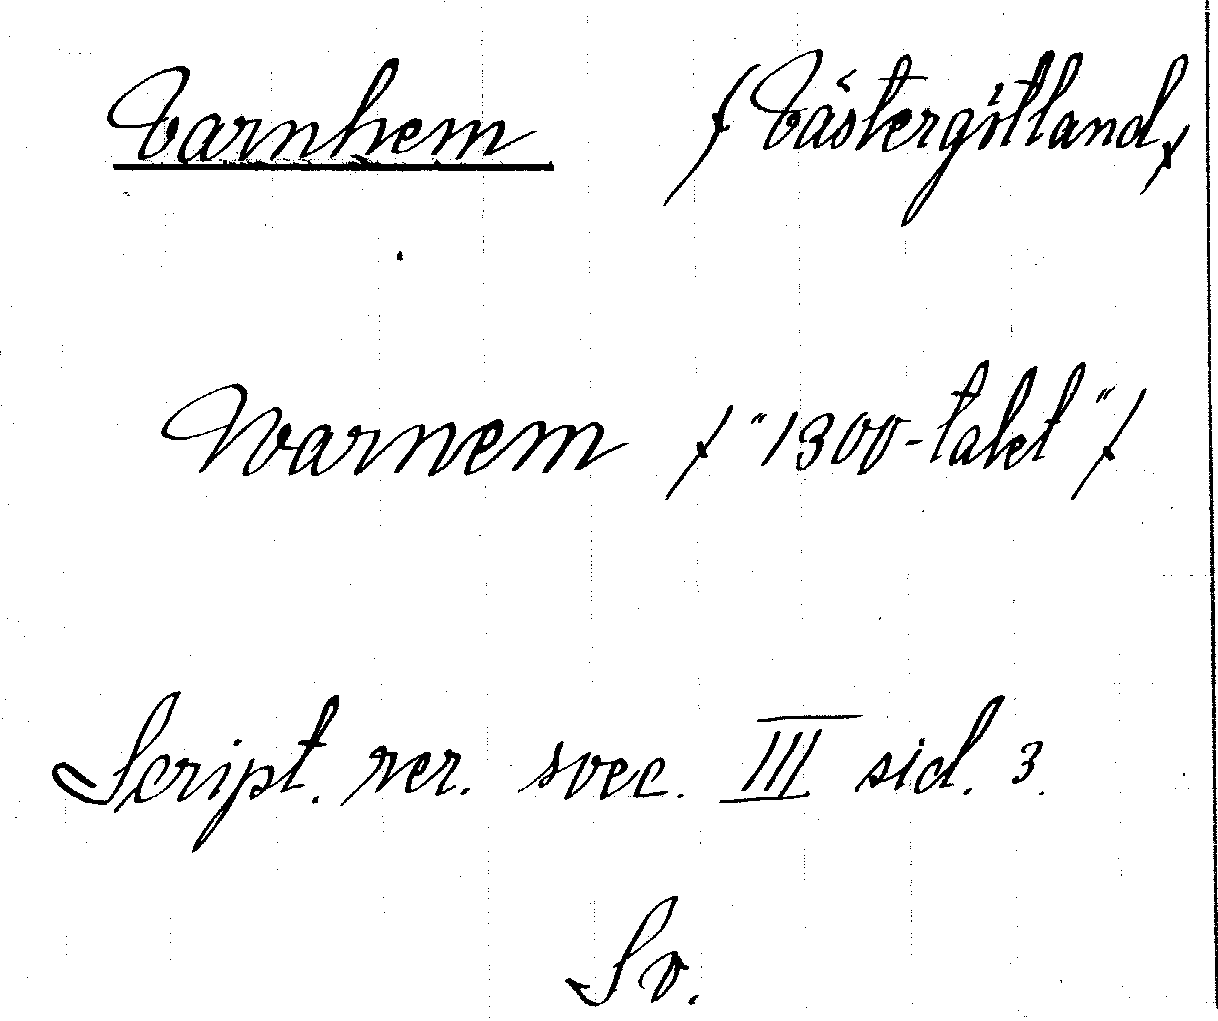 Varnhem /Västergötland/
Warnem /"1300-talet"/
Script. rer. svec. III sid. 3.
Sv.